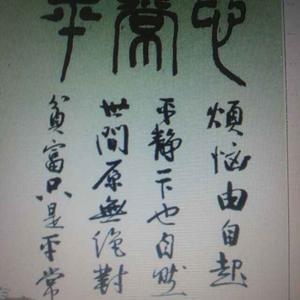 心平
煩惱由自起
平静下也自然
世間原無絕對
貧富只是平常